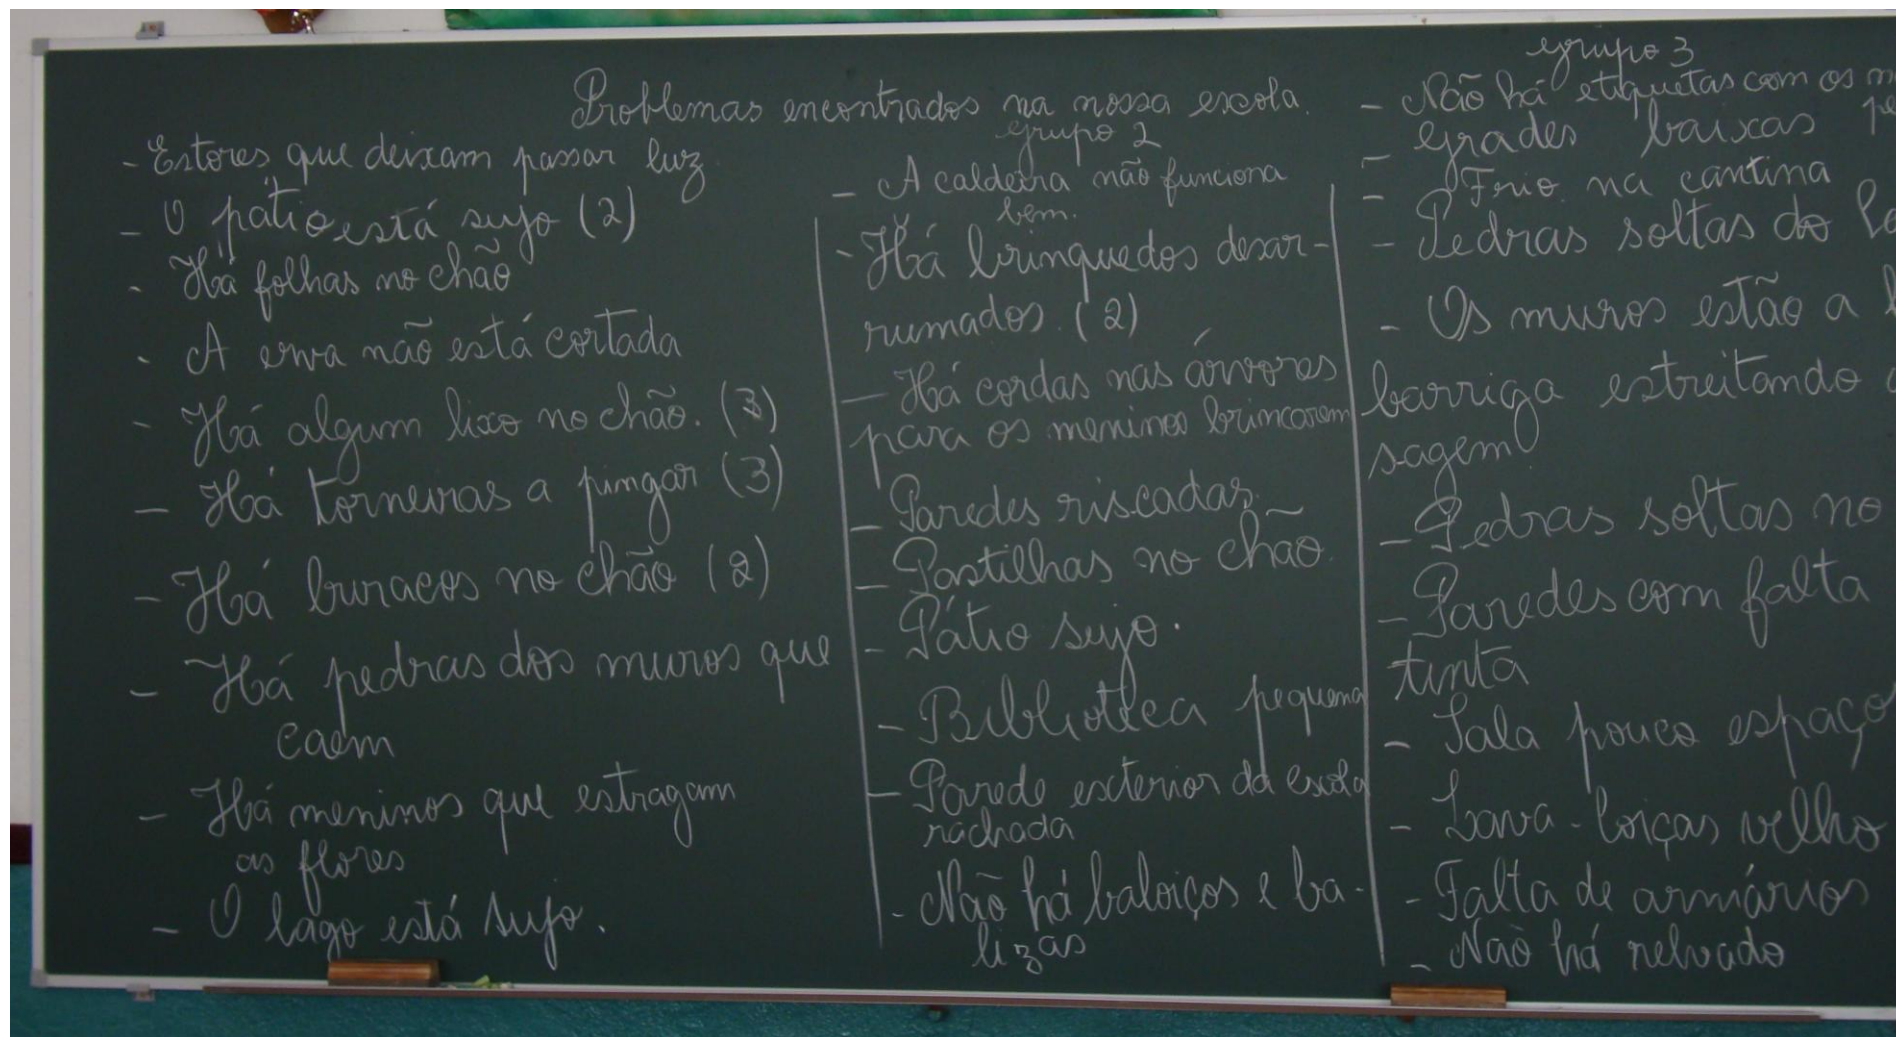 Problemas encontrados na nossa escola.
- Estores que deixam passar luz
- O pátio está sujo (2)
- Há folhas no chão
- A erva não está cortada
- Há algum lixo no chão. (3)
- Há torneiras a pingar (3)
- Há buracos no chão (2)
- Há pedras dos muros que
caem
- Há meninos que estragam
as flores
- O lago está sujo.
grupo 2
- A caldeira não funciona
bem.
- Há brinquedos desar-
rumados. (2)
- Há cordas nas árvores
para os meninos brincarem
- Paredes riscadas.
- Pastilhas no chão.
- Pátio sujo.
- Biblioteca pequena
- Parede exterior da escola
rachada
- Não há baloiços e ba-
lizas
grupo 3
- Não há etiquetas com os
- Grades baixas
- Frio na cantina
- Pedras soltas do
- Os muros estão a
barriga estreitando
sagem
- Pedras soltas no
- Paredes com falta
tinta
- Sala pouco espaço
- Lava-loiças velho
- Falta de armários
- Não há relvado